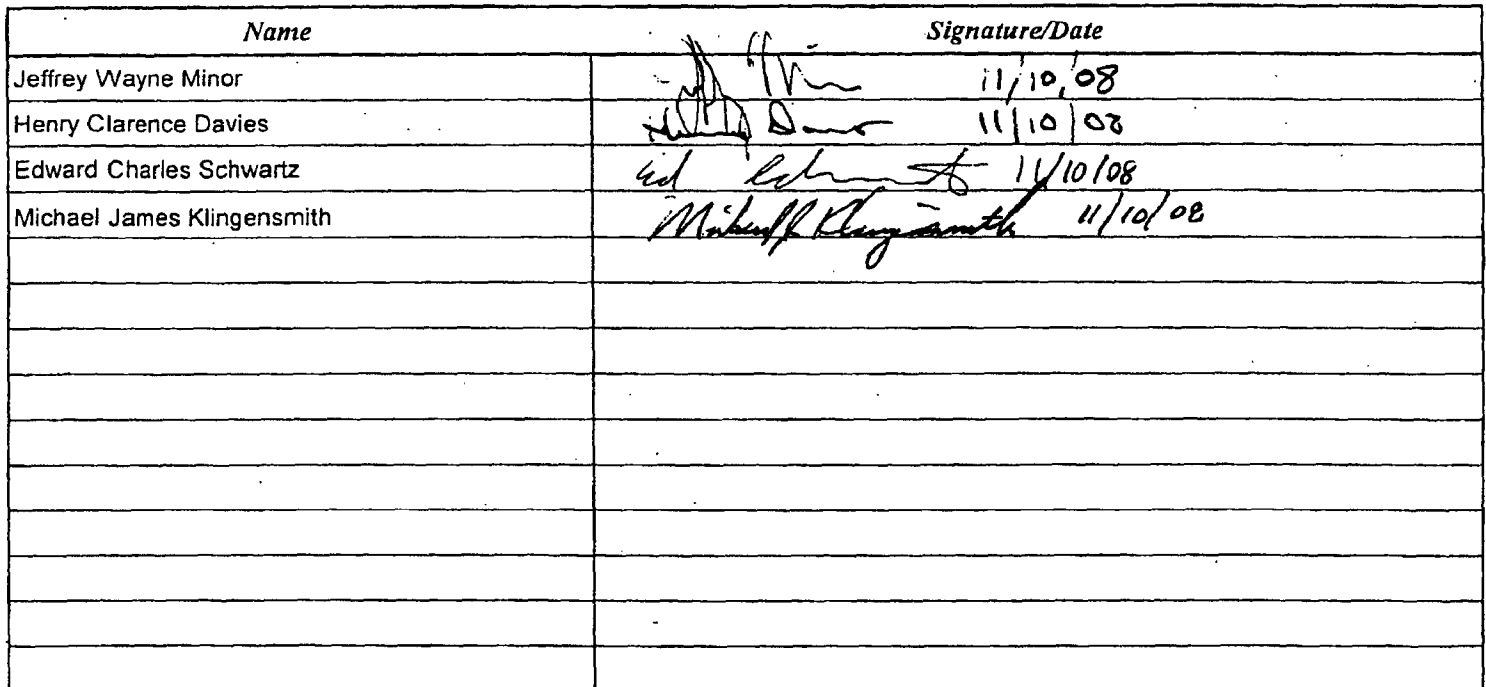 Name Signature/Date
Jeffrey Wayne Minor 11/10/08
Henry Clarence Davies 11/10/08
Edward Charles Schwartz Ed 11/10/08
Michael James Klingensmith Michael J Klingensmith 11/10/08